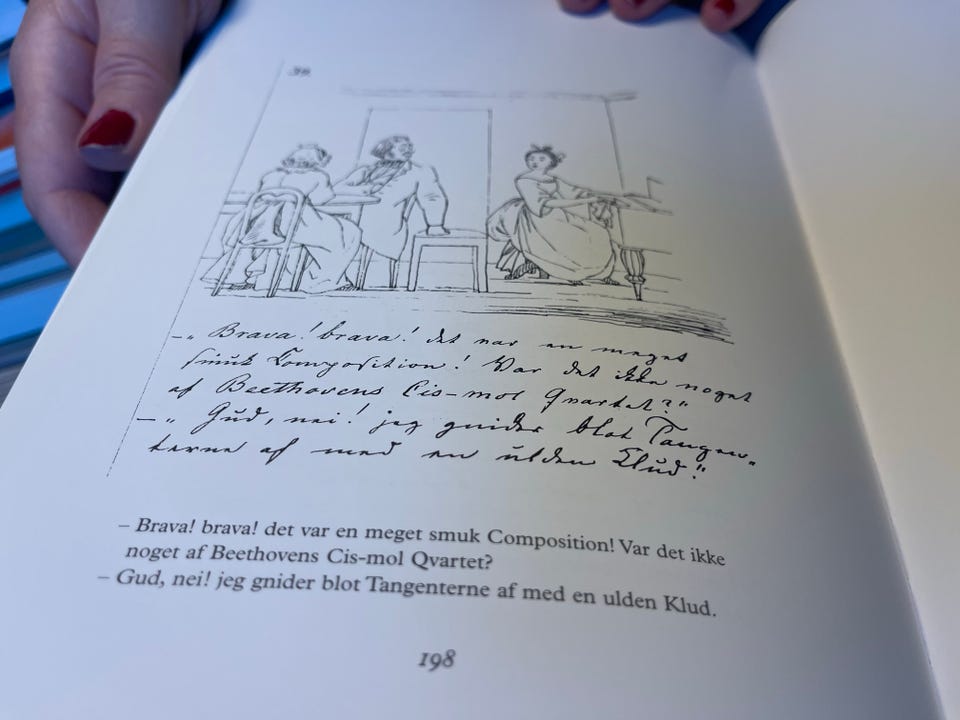 39
—„ Brava! brava! det var en meget
smuk Composition! Var det ikke noget
af Beethovens Cis-mol Qvartet?“
—„ Gud, nei! jeg gnider blot Tangen-
terne af med en ulden Klud.“
– Brava! brava! det var en meget smuk Composition! Var det ikke
noget af Beethovens Cis-mol Qvartet?
– Gud, nei! jeg gnider blot Tangenterne af med en ulden Klud.
198